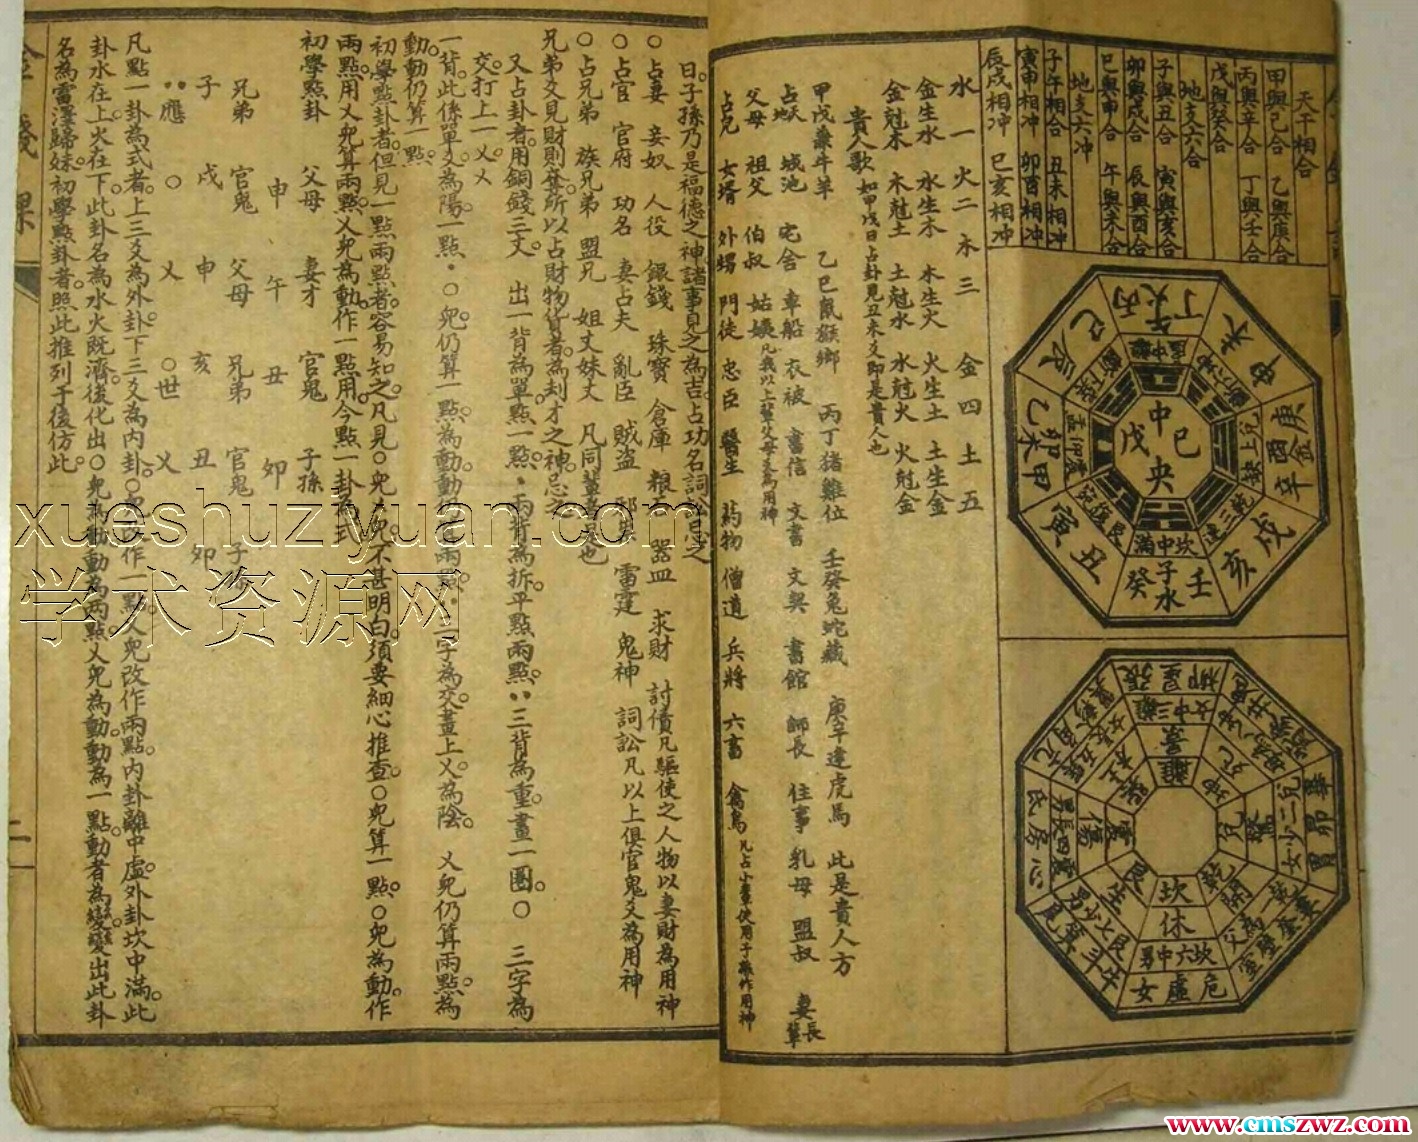 天干相合
甲與己合 乙與庚合
丙與辛合 丁與壬合
戊與癸合
地支六合
子與丑合 寅與亥合
卯與戌合 辰與酉合
巳與申合 午與未合
地支六冲
子午相合 丑未相冲
寅申相冲 卯酉相冲
辰戌相冲 巳亥相冲
水一 火二 木三 金四 土五
金生水 水生木 木生火 火生土 土生金
金尅木 木尅土 土尅水 水尅火 火尅金
貴人歌 如甲戊日占卦見丑未爻即是貴人也
甲戊兼牛羊 乙己鼠猴鄉 丙丁猪雞位 壬癸兔蛇藏 庚辛逢虎馬 此是貴人方
城池 宅舍 車船 衣被 書信 文書 文契 書館 師長 住事 乳母 盟叔 妻長輩
父母 祖父 伯叔 姑姨 凡我以上輩父母爻為用神
占兄 女壻 外甥 門徒 忠臣 醫生 葯物 僧道 兵將 六畜 禽鳥 凡占小輩使用子孫作用神
日子孫乃是福德之神諸事見之為吉占功名詞訟忌之
○占妻 妾奴 人役 銀錢 珠寶 倉庫 粮 器皿 求財 討債凡驅使之人物以妻財為用神
○占官 官府 功名 妻占夫 亂臣 賊盗 雷霆 鬼神 詞訟凡以上俱官鬼爻為用神
○占兄弟 族兄弟 盟兄 姐丈妹丈 凡同輩 也
兄弟爻見財則奪所以占財物貨者為刦才之神忌之
又占卦者用銅錢三文 出一背為單點一點、兩背為拆平點兩點、、三背為重畫一圈○ 三字為
交打上一乂
一背此係單爻為陽一點、○兒仍算一點為動動 兩 、三字為交畫上乂為陰 乂兒仍算兩點為
動動仍算一點
初學點卦者但見一點兩點者容易知之凡見○兒乂兒不甚明白須要細心推查○兒算一點○兒為動作
兩點用乂兒算兩點乂兒為動作一點用今點一卦為式
初學點卦 父母 妻才 官鬼 子孫
申 午 丑 卯
兄弟 官鬼 父母 兄弟 官鬼 子孫
子 戌 申 亥 丑 卯
、、應 ○ 乂 ○世 乂
凡點一卦為式者上三爻為外卦下三爻為内卦○兒改作一點乂兒改作兩點内卦離中虚外卦坎中滿此
卦水在上火在下此卦名為水火既濟後化出○兒為動動為兩點乂兒為動動為一點動者為變變出此卦
名為雷澤歸妹初學點卦者照此推列于後仿此
二
中央
戊己
丁火丙
午
離中虚
未
坤六
庚金辛
酉
兌上缺
戌
亥
乾三連
壬
子水
癸
坎中滿
丑
寅
艮覆碗
甲
卯木
乙
震仰盂
辰
巳
坎
休
坎六中男
危虛女
xueshuziyuan.com
学术资源网
www.cmszwz.com